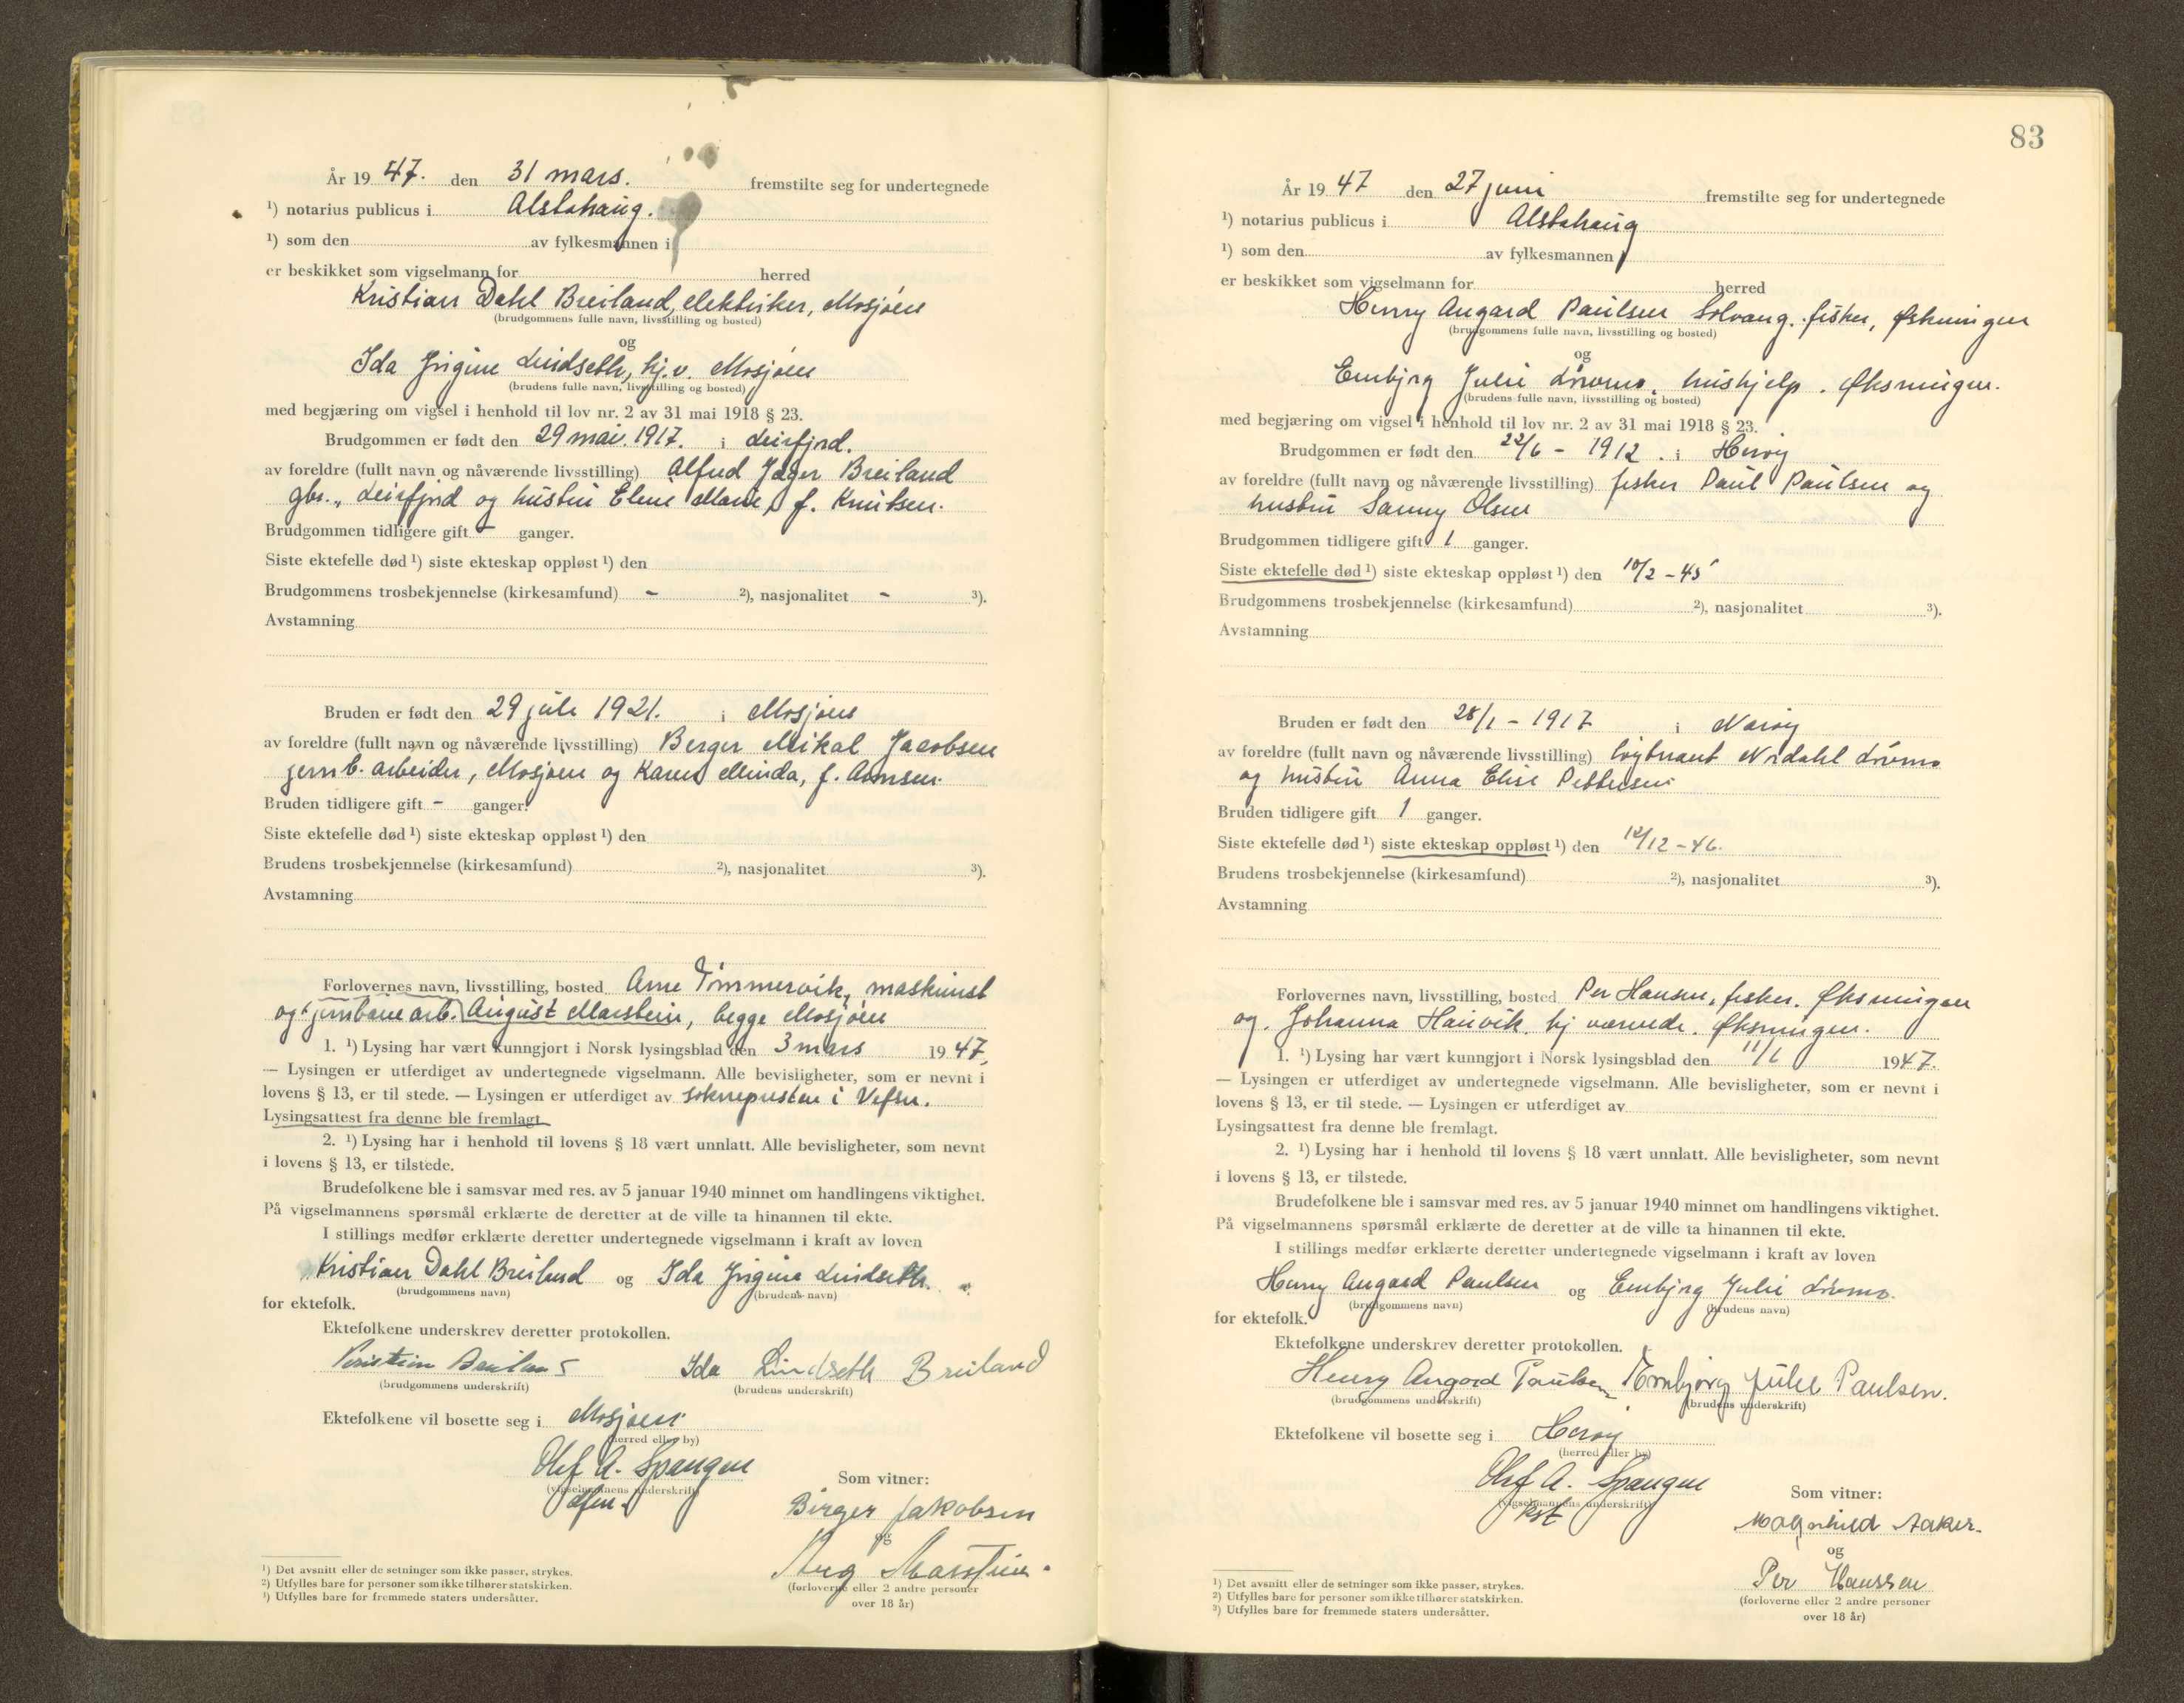 År 19 47. den 31 mars. fremstilte seg for undertegnede
¹) notarius publicus i Alstahaug.
¹) som den av fylkesmannen i
er beskikket som vigselmann for herred
Kristian Dahl Breiland, elektriker, Mosjøen
(brudgommens fulle navn, livsstilling og bosted)
og
Ida Jrigine Lindseth, hj.v. Mosjøen
(brudens fulle navn, livsstilling og bosted)
med begjæring om vigsel i henhold til lov nr. 2 av 31 mai 1918 § 23.
Brudgommen er født den 29 mai 1917. i Leirfjord.
av foreldre (fullt navn og nåværende livsstilling) Alfred Jæger Breiland
gbr., Leirfjord og hustru Elene Marie, f. Knutsen.
Brudgommen tidligere gift - ganger.
Siste ektefelle død ¹) siste ekteskap oppløst ¹) den
Brudgommens trosbekjennelse (kirkesamfund) - ²), nasjonalitet - ³).
Avstamning
Bruden er født den 29 juli 1921. i Mosjøen
av foreldre (fullt navn og nåværende livsstilling) Berger Mikal Jacobsen
jernb. arbeider, Mosjøen og Karen Minda, f. Aamsen.
Bruden tidligere gift - ganger.
Siste ektefelle død ¹) siste ekteskap oppløst ¹) den
Brudens trosbekjennelse (kirkesamfund) ²), nasjonalitet ³).
Avstamning
Forlovernes navn, livsstilling, bosted Arne Tømmervik, maskinist
og jernbanearb. August Marstein, begge Mosjøen
1. ¹) Lysing har vært kunngjort i Norsk lysingsblad den 3 mars 19 47,
— Lysingen er utferdiget av undertegnede vigselmann. Alle bevisligheter, som er nevnt i
lovens § 13, er til stede. — Lysingen er utferdiget av sokneprsten i Vefsn.
Lysingsattest fra denne ble fremlagt
2. ¹) Lysing har i henhold til lovens § 18 vært unnlatt. Alle bevisligheter, som nevnt
i lovens § 13, er tilstede.
Brudefolkene ble i samsvar med res. av 5 januar 1940 minnet om handlingens viktighet.
På vigselmannens spørsmål erklærte de deretter at de ville ta hinannen til ekte.
I stillings medfør erklærte deretter undertegnede vigselmann i kraft av loven
Kristian Dahl Breiland og Ida Jrigine Lindseth.
(brudgommens navn) (brudens navn)
for ektefolk.
Ektefolkene underskrev deretter protokollen.
Kristian Breiland Ida Lindseth Breiland
(brudgommens underskrift) (brudens underskrift)
Ektefolkene vil bosette seg i Mosjøen.
(herred eller by)
Olef A. Spangen
(vigselmannens underskrift)
Som vitner:
Birger Jakobsen
og
Aug Marstein.
(forloverne eller 2 andre personer
over 18 år)
¹) Det avsnitt eller de setninger som ikke passer, strykes.
²) Utfylles bare for personer som ikke tilhører statskirken.
³) Utfylles bare for fremmede staters undersåtter.
83
År 19 47 den 27 juni fremstilte seg for undertegnede
¹) notarius publicus i Alstahaug
¹) som den av fylkesmannen i
er beskikket som vigselmann for herred
Henry Angard Paulsen Solvang. fisker, Øksningen
(brudgommens fulle navn, livsstilling og bosted)
og
Embjrg Julie Lrømo, hushjelp. Øksningen.
(brudens fulle navn, livsstilling og bosted)
med begjæring om vigsel i henhold til lov nr. 2 av 31 mai 1918 § 23.
Brudgommen er født den 22/6 - 1912. i Herøy
av foreldre (fullt navn og nåværende livsstilling) fisker Paul Paulsen og
hustru Sanny Olsen
Brudgommen tidligere gift 1 ganger.
Siste ektefelle død ¹) siste ekteskap oppløst ¹) den 10/2 - 45
Brudgommens trosbekjennelse (kirkesamfund) ²), nasjonalitet ³).
Avstamning
Bruden er født den 28/1 - 1917 i Nærøy
av foreldre (fullt navn og nåværende livsstilling) løytnant Nrdahl Lrømo
og hustru Anna Elise Pettersen
Bruden tidligere gift 1 ganger.
Siste ektefelle død ¹) siste ekteskap oppløst ¹) den 12/12 - 46.
Brudens trosbekjennelse (kirkesamfund) ²), nasjonalitet ³).
Avstamning
Forlovernes navn, livsstilling, bosted Per Hansen, fisker. Øksningen
og. Johanna Hauvik. hj værende. Øksningen.
1. ¹) Lysing har vært kunngjort i Norsk lysingsblad den 11/6 1947.
— Lysingen er utferdiget av undertegnede vigselmann. Alle bevisligheter, som er nevnt i
lovens § 13, er til stede. — Lysingen er utferdiget av
Lysingsattest fra denne ble fremlagt.
2. ¹) Lysing har i henhold til lovens § 18 vært unnlatt. Alle bevisligheter, som nevnt
i lovens § 13, er tilstede.
Brudefolkene ble i samsvar med res. av 5 januar 1940 minnet om handlingens viktighet.
På vigselmannens spørsmål erklærte de deretter at de ville ta hinannen til ekte.
I stillings medfør erklærte deretter undertegnede vigselmann i kraft av loven
Henry Angard Paulsen og Embjrg Julie Lrømo.
(brudgommens navn) (brudens navn)
for ektefolk.
Ektefolkene underskrev deretter protokollen.
Henry Angard Paulsen Embjørg Julie Paulsen.
(brudgommens underskrift) (brudens underskrift)
Ektefolkene vil bosette seg i Herøy
(herred eller by)
Olef A. Spangen
(vigselmannens underskrift)
kst
Som vitner:
Magnhild Aaker.
og
Per Hanssen
(forloverne eller 2 andre personer
over 18 år)
¹) Det avsnitt eller de setninger som ikke passer, strykes.
²) Utfylles bare for personer som ikke tilhører statskirken.
³) Utfylles bare for fremmede staters undersåtter.